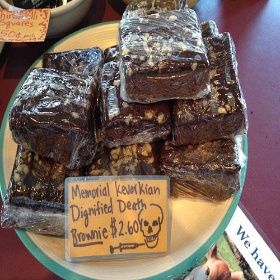 Squares
50¢
Memorial Kevorkian
Dignified Death
Brownie $2.60
We have